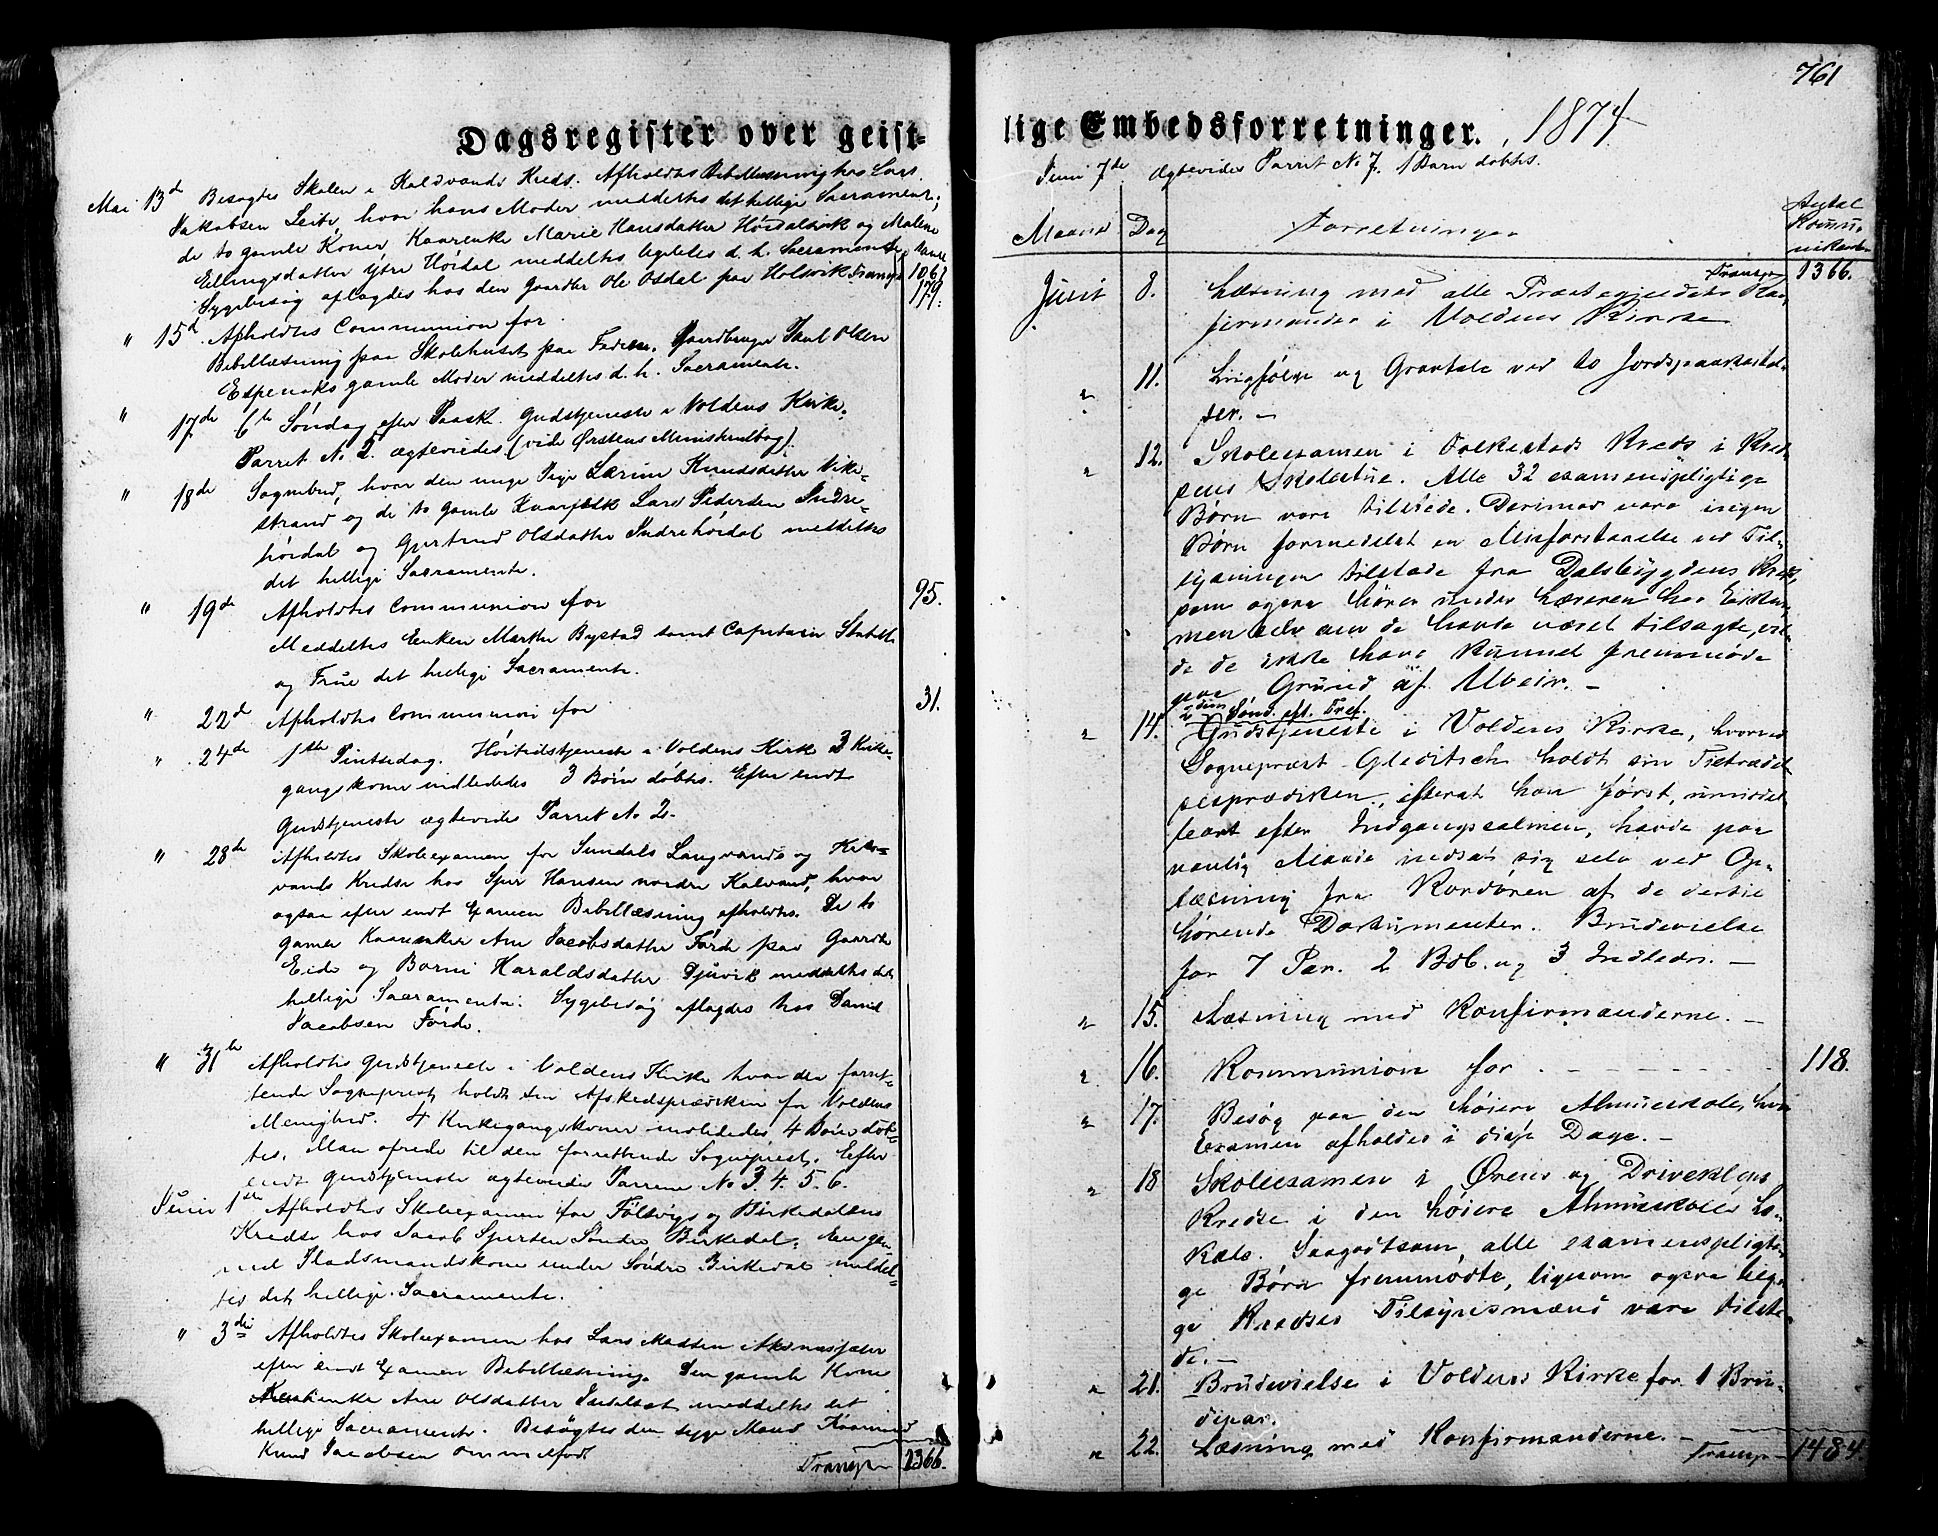 761
Dagsregister over geist-
Mai 13d Besøgtes Skolen i Kaldvands Kreds. Afholdtes Bibellæsning hos Lars
Jakobsen Leite, hvor hans Moder meddeltes det hellige Sacramente;
de to gamle Koner, Kaarenke Marie Hansdatter Høidalsvik og Malene
Ellingsdatter Ytre Høidal meddeltes ligeledes d. h. Sacramente
Sygebesøg aflagdes hos den Gaardbr Ole Osdal paa Holsvik Transp 1061
" 15d. Afholdtes Communion for 179.
Bibellæsning paa Skolehuset paa Gaardbruger Poul Olsen
Espenaks gamle Moder meddeltes d. h. Sacramente.
" 17de 6te Søndag efter Paaske. Gudstjeneste i Voldens Kirke.
Parret No 2. ægteviedes (vide Ørstens Ministerialbog).
" 18de Sognebud, hvor den unge Pige Lærine Knudsdatter Vike-
strand og de to gamle Kaarfolk Lars Pedersen Indre-
høidal og Gjertrud Olsdatter Indrehøidal meddeltes
det hellige Sacramente.
" 19de Afholdtes Communion for 95.
Meddeltes Enken Marthe Bystad samt Capitain
og Frue det hellige Sacramente.
" 22d Afholdtes Communion for 31.
" 24de 1ste Pintsedag. Høitidstjeneste i Voldens Kirke 3 Kirke-
gangskoner indlededes 3 Børn døbtes. Efter endt
Gudstjeneste ægtevides Parret No 2.
" 28de Afholdtes Skoleexamen for Sundals Langvands og
vands Kredse hos Sjur Hansen nordre Kalvand, hvor
ogsaa efter endt Examen Bibellæsning afholdtes. De to
gamle Kaarenker Ane Jacobsdatter Førde paa Gaarden
Eide og Borni Haraldsdatter Djuvik meddeltes det
hellige Sacramente. Sygebesøg aflagdes hos David
Jacobsen Førde.
" 31te Afholdtes Gudstjeneste i Voldens Kirke hvor den forret-
tende Sogneprest holdt sin Afskedsprædiken for Voldens
Menighed. 4 Kirkegangskoner indlededes 4 Børn døb-
tes. Man ofrede til den forrettende Sogneprest. Efter
endt Gudstjeneste ægtevides Parrene No 3. 4. 5. 6.
Juni 1ste Afholdtes Skoleexamen for Følsvigs og Birkedalens
Kredse hos Jacob Sjursen Søndre Birkedal; den gam-
le Pladsmandskone under Søndre Birkedal meddel-
tes det hellige Sacramente.
" 3die Afholdtes Skoleexamen hos Lars Madsen Aksnesfæter
efter endt Examen Bibellæsning. Den gamle Kone
Ane Olsdatter meddeltes det
hellige Sacramente. Besøgtes den syge Mand
Knud Jacobsen
Transp 1366.
lige Embedsforretninger. 1874
Juni 7de Ægtevides Parret No 7. 1 Barn døbtes.
Maaned Dag Forretninger Antal Kommunikanter
Transp 1366.
Juni 8. Læsning med alle Præstegjeldets Kon-
firmander i Voldens Kirke
" 11. Liigfølge og Gravtale ved to Jordspaakastel-
ser. –
" 12. Skoleexamen i Folkestads Kreds i Kred-
sens Skolestue. Alle 32 examenspligtige
Børn vare tilstede. Derimod vare ingen
Børn formedelst en Misforstaaelse ved Til-
sigelsen tilstede fra Dalsbygdens Kreds,
som ogsaa hører under Læreren
men selv om de havde været tilsagte, vil-
de de ikke have kunnet fremmøde
paa Grund af Uveir. –
" 14. 2den Sønd. eft. Tref.
Gudstjeneste i Voldens Kirke, hvorved
Sognepræst Gleditsch holdt sin Tiltrædel-
sesprædiken, efterat han først, umiddel-
bart efter Indgangspsalmen, havde paa
vanlig Maade indsat sig selv ved Op-
læsning fra Kordøren af de dertil
hørende Dokumenter. Brudevielse
for 7 Par. 2 Bdb. og 3 Indledn. –
" 15. Læsning med Konfirmanderne. –
" 16. Kommunion for 118.
" 17. Besøg paa den høiere Almueskole, hvor
Examen afholdes i disse Dage. –
" 18 Skoleexamen i Ørens og Driveklepps
Kredse i den høiere Almueskoles Lo-
kale. Saagodtsom, alle examenspligti-
ge Børn fremmødte, ligesom ogsaa begge
Kredses Tilsynsmænd vare tilste-
de. –
" 21. Brudevielse i Voldens Kirke for 1 Bru-
depar.
" 22. Læsning med Konfirmanderne. – Transp 1484.